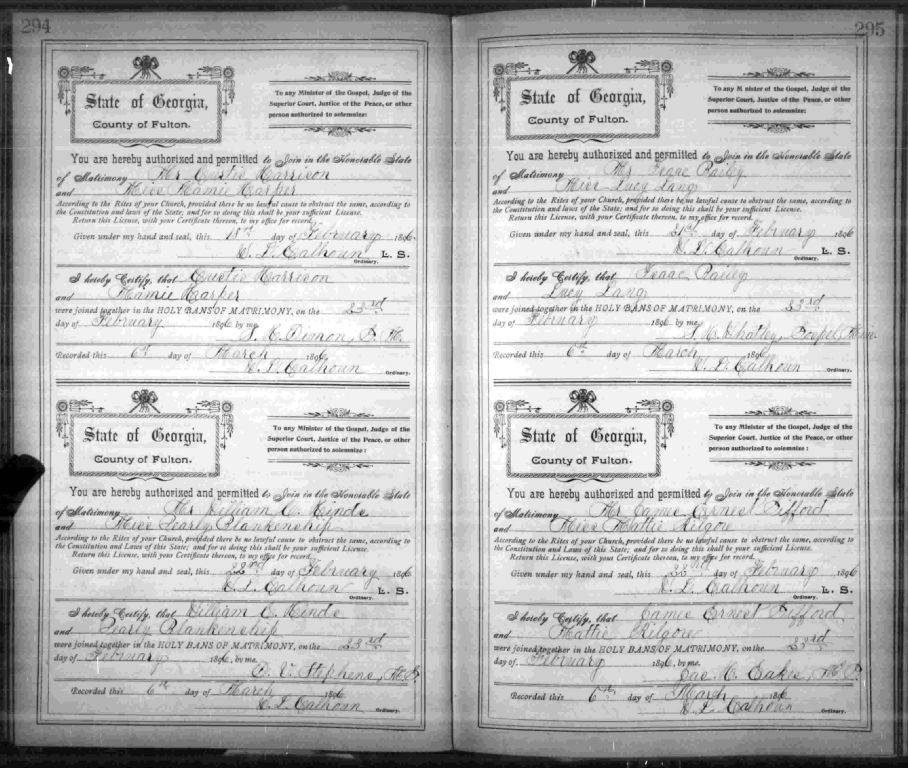 294
State of Georgia,
County of Fulton.
To any Minister of the Gospel, Judge of the
Superior Court, Justice of the Peace, or other
person authorized to solemnize:
You are hereby authorized and permitted to Join in the Honorable State
of Matrimony Mr Harrison
and Miss Mamie Harper
According to the Rites of your Church, provided there be no lawful cause to obstruct the same, according to
the Constitution and laws of the State; and for so doing this shall be your sufficient License.
Return this License, with your Certificate thereon, to my office for record.
Given under my hand and seal, this 18th day of February 1896.
W. L. Calhoun L. S.
Ordinary.
I hereby Certify, that Harrison
and Mamie Harper
were joined together in the HOLY BANS OF MATRIMONY, on the 23rd
day of February 1896 by me
S. C.
Recorded this 6th day of March 1896
W. L. Calhoun
Ordinary.
State of Georgia,
County of Fulton.
To any Minister of the Gospel, Judge of the
Superior Court, Justice of the Peace, or other
person authorized to solemnize:
You are hereby authorized and permitted to Join in the Honorable State
of Matrimony Mr William C. Hinde
and Miss Pearly Blankenship
According to the Rites of your Church, provided there be no lawful cause to obstruct the same, according to
the Constitution and Laws of this State; and for so doing this shall be your sufficient License.
Return this License, with your Certificate thereon, to my office for record.
Given under my hand and seal, this 22nd day of February 1896
W. L. Calhoun L. S.
Ordinary.
I hereby Certify, that William C. Hinde
and Pearly Blankenship
were joined together in the HOLY BANS OF MATRIMONY, on the 23rd
day of February 1896, by me.
Stephens,
Recorded this 6th day of March 1896
W. L. Calhoun
Ordinary.
295
State of Georgia,
County of Fulton.
To any Minister of the Gospel, Judge of the
Superior Court, Justice of the Peace, or other
person authorized to solemnize:
You are hereby authorized and permitted to Join in the Honorable State
of Matrimony Mr Isaac Railey
and Miss Lucy Lang
According to the Rites of your Church, provided there be no lawful cause to obstruct the same, according to
the Constitution and laws of the State; and for so doing this shall be your sufficient License.
Return this License, with your Certificate thereon, to my office for record.
Given under my hand and seal, this 21st day of February 1896
W. L. Calhoun L. S.
Ordinary.
I hereby Certify, that Isaac Railey
and Lucy Lang
were joined together in the HOLY BANS OF MATRIMONY, on the 23rd
day of February 1896 by me
Whatley, Gospel Min
Recorded this 6th day of March 1896
W. L. Calhoun
Ordinary.
State of Georgia,
County of Fulton.
To any Minister of the Gospel, Judge of the
Superior Court, Justice of the Peace, or other
person authorized to solemnize:
You are hereby authorized and permitted to Join in the Honorable State
of Matrimony Mr Ernest Tifford
and Miss Mattie Kilgore
According to the Rites of your Church, provided there be no lawful cause to obstruct the same, according to
the Constitution and Laws of this State; and for so doing this shall be your sufficient License.
Return this License, with your Certificate thereon, to my office for record.
Given under my hand and seal, this 22nd day of February 1896
W. L. Calhoun L. S.
Ordinary.
I hereby Certify, that Ernest Tifford
and Mattie Kilgore
were joined together in the HOLY BANS OF MATRIMONY, on the 23rd
day of February 1896, by me.
Eakes,
Recorded this 6th day of March 1896
W. L. Calhoun
Ordinary.